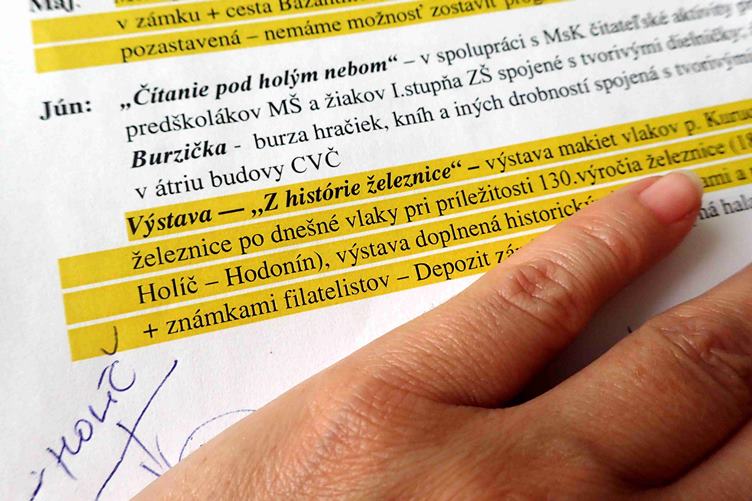 Máj:
v zámku + cesta
pozastavená – nemáme možnosť zostaviť
Jún: „Čítanie pod holým nebom“ – v spolupráci s MsK čitateľské aktivity
predškolákov MŠ a žiakov I.stupňa ZŠ spojené s tvorivými dielničky,
Burzička - burza hračiek, kníh a iných drobností spojená s tvorivými
v átriu budovy CVČ
Výstava — „Z histórie železnice“ – výstava makiet vlakov p.
železnice po dnešné vlaky pri príležitosti 130.výročia železnice
Holíč – Hodonín), výstava doplnená
+ známkami filatelistov – Depozit
Holíč